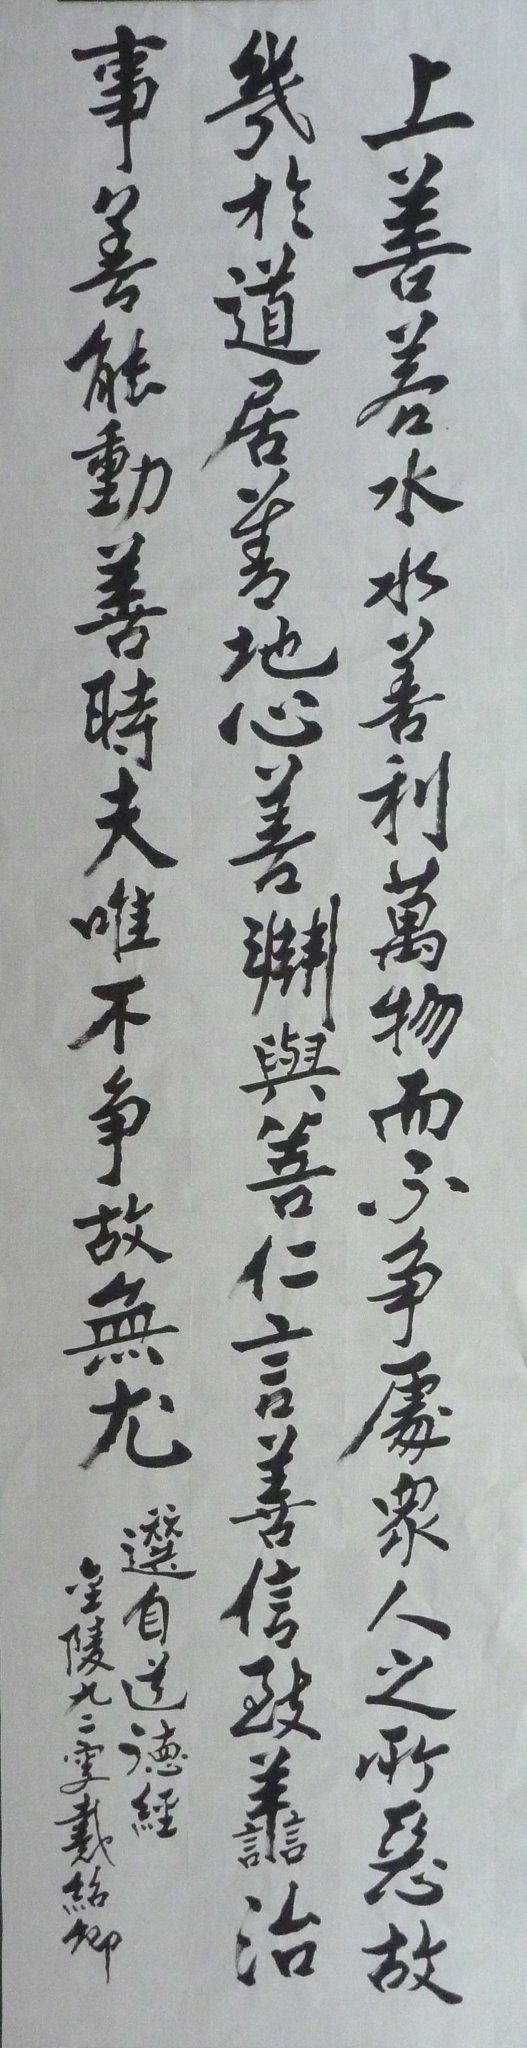 上善若水水善利萬物而不争處眾人之所惡故
幾於道居善地心善淵與善仁言善信政善治
事善能動善時夫唯不争故無尤
選自道德經
金陵九二叟戴紹卿